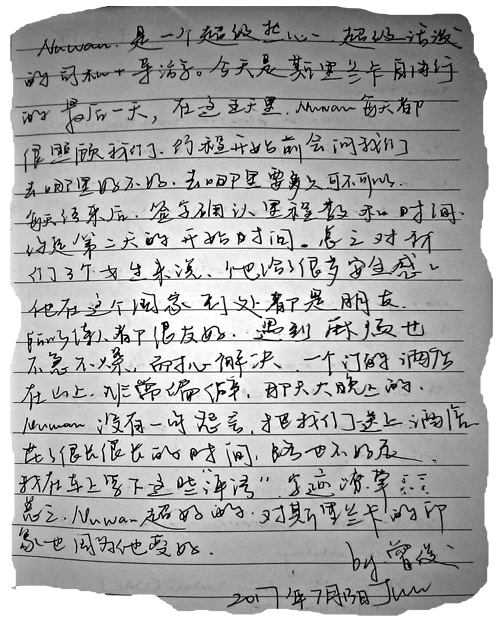 Nuwan 是一个超级热心、超级活泼
的司机+导游。今天是斯里兰卡自由行
的最后一天，在这五天里，Nuwan每天都
很照顾我们、行程开始前会问我们
去哪里好不好、去哪里要多久可不可以.
每天结束后，签字确认里程数和时间.
约定第二天的开始时间。总之对我
们3个女生来说、他给了很多安全感、
他在这个国家到处都是朋友.
所以 都很友好. 遇到麻烦也
不急不燥、耐心解决、一个订的酒店
在山上、非常偏僻，那天大晚上的、
Nuwan 没有一句怨言，把我们送上酒店
花了很长很长的时间，路也不好走
我在车上写下这些“评语”字迹潦草
总之，Nuwan超好的，对斯里兰卡的印
象也因为他变好.
by 曾俊
2017年7月 日